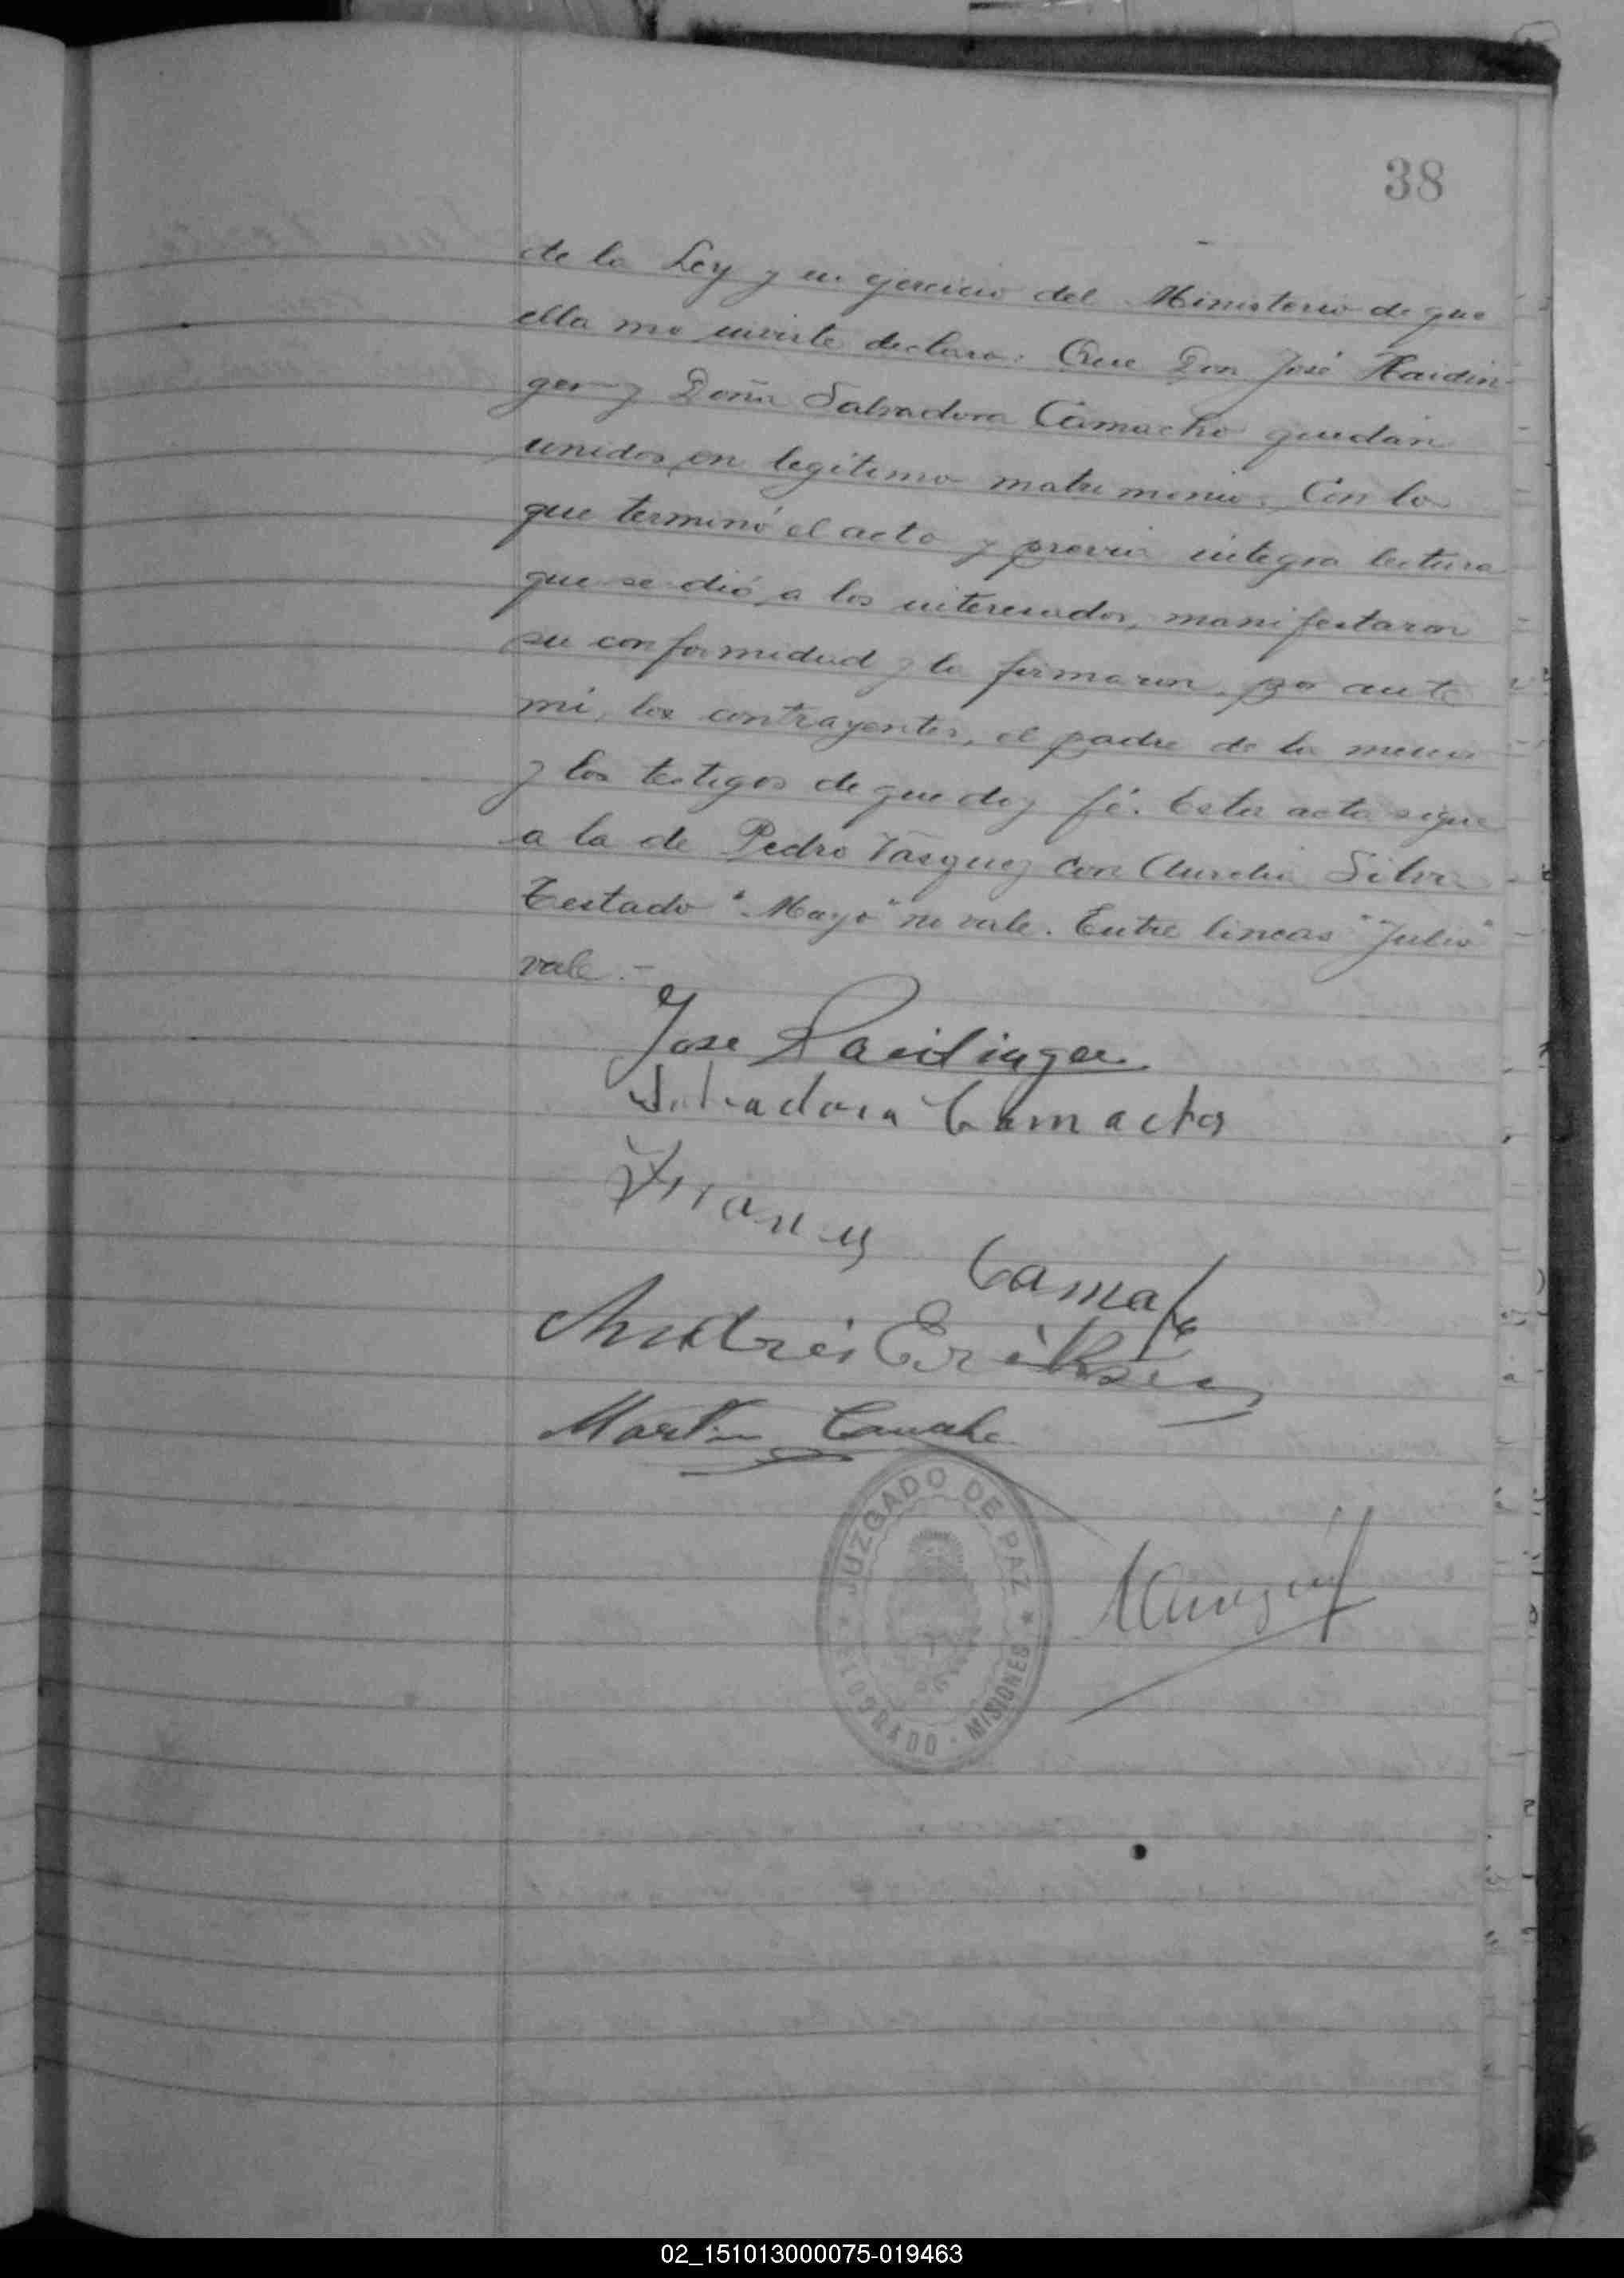 38
de la Ley y en ejercicio del Ministerio de que
ella me inviste declaro: Que Don José Haidin-
ger y Doña Salvadora Camacho quedan
unidos en legítimo matrimonio. Con lo
que terminó el acto y previa integra lectura
que se dió a los interesados, manifestaron
su conformidad y la firmaron, por ante
mi, los contrayentes, el padre de la menor
y los testigos de que doy fé. Esta acta sigue
a la de Pedro Vasquez con Aurelia Silva
Testado "Mayo" no vale. Entre lineas "Julio"
vale.-
Jose Haidinger
Salvadora Camacho
Camacho
Andrés Eriksen
Martin
JUZGADO DE PAZ
ELDORADO · MISIONES
02_151013000075-019463